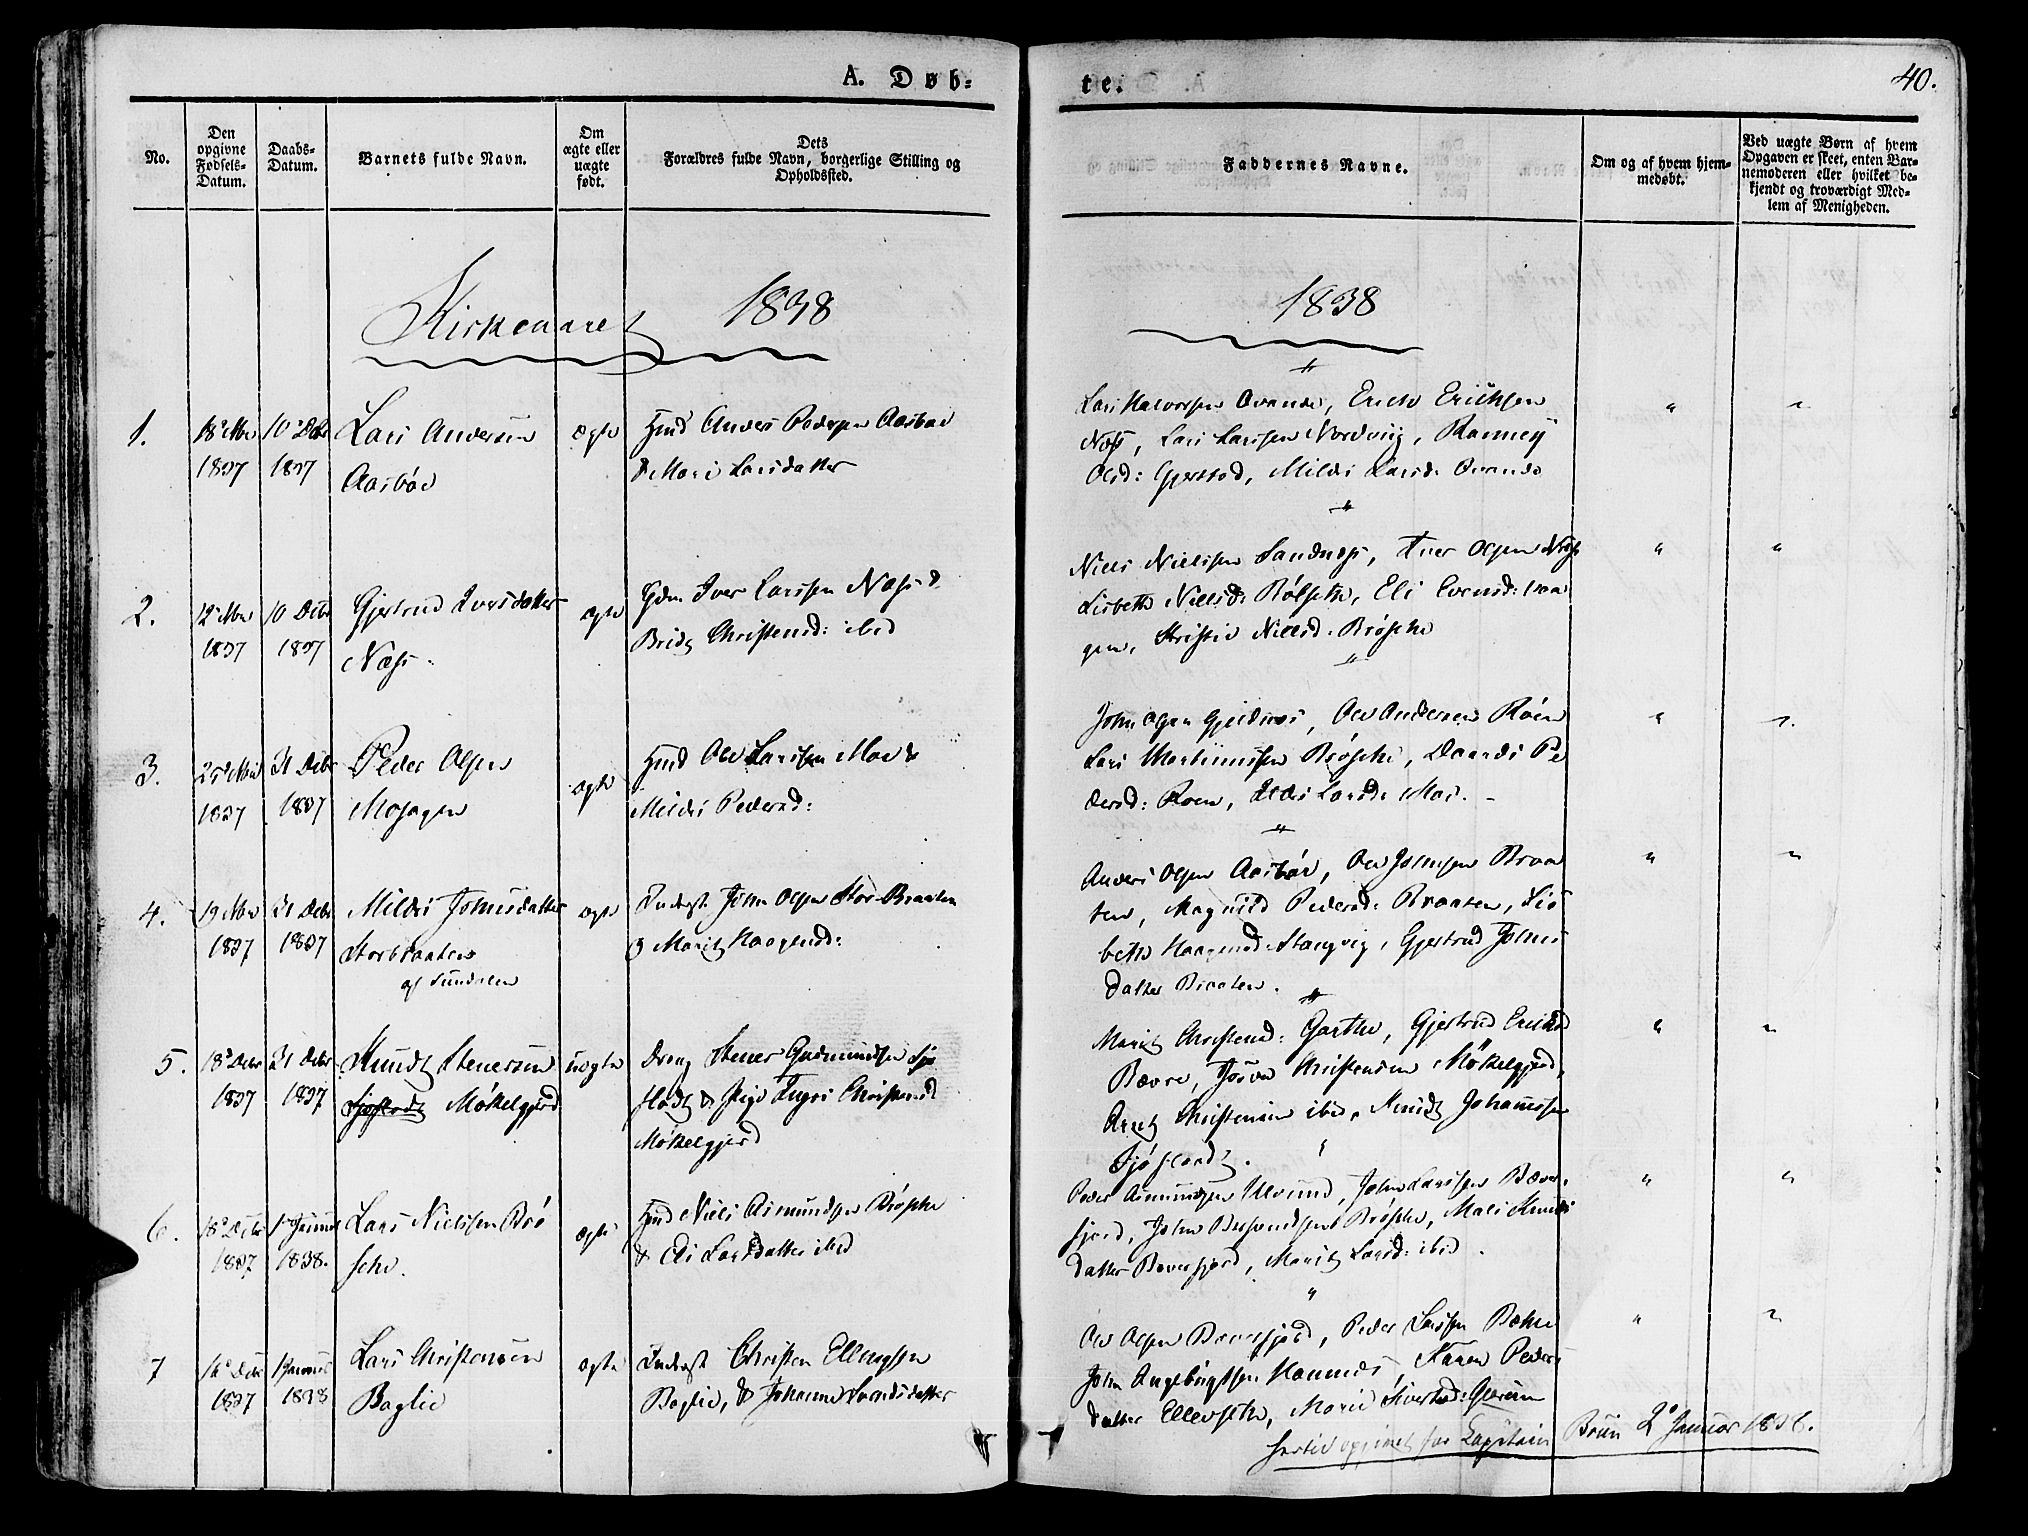 A. Døb-
te.
40.
No.
Den
opgivne
Fødsels-
Datum.
Daabs-
Datum.
Barnets fulde Navn.
Om
ægte eller
uægte
født.
Dets
Forældres fulde Navn, borgerlige Stilling og
Opholdssted.
Faddernes Navne.
Om og af hvem hjem-
medøbt.
Ved uægte Børn af hvem
Opgaven er skeet, enten Bar-
nemoderen eller hvilket be-
kjendt og troværdigt Med-
lem af Menigheden.
Kirkeaaret 1838
1838
1.
1837
10 Decbr
1837
Lars Andersen
Aasbøe
ægte
Anders Pedersen Aasboe
& Mari Larsdatter
Lars Halvorsen Eriksen
Næss, Lars Larssen Nordvig, Ranney
Olsd: Gjerstad, Mildri Larsd:
2.
12 Nbr
1837
10 Decbr
1837
Gjertrud Iversdatter
Næss
ægte
Iver Larssen Næss &
Brit Christensd: ibid
Niels Nielssen Sandnæss, Iver Olsen Næss
Lisbeth Nielsd: Rølseth, Eli Evensd:
gen, Kristie Nielsd: Brøske
3.
25 Nbr
1837
31 Decbr
1837
Peder Olsen
Mohagen
ægte
Ole Larssen Moe &
Mildri Pedersd:
John Olsen Gjeldnæs, Ole Andersen Røen
Lars Mortinussen Brøske, Daardi Pe
dersd: Roen, Larsd: Moe.
4.
19 Nbr
1837
31 Decbr
1837
Mildri Johnsdatter
Storbraaten
af Sundalen
ægte
Inderst John Olsen Stor-Braaten
& Marit Haagensd:
Anders Olsen Aasbøe, Ole Johnsen Braa
ten, Magnild Pedersd: Braaten, Lis
beth Haagensd: Stangvig, Gjertrud Johns
datter Braaten.
5.
18 Decbr
1837
31 Decbr
1837
Knudt Stenersen
Sjøflodt Møkelgjerd
uægte
Dreng Stener Gudmundsen Sjø
flodt & Pige Ingri Christensd
Møkelgjerd
Marit Christensd: Garthe, Gjertrud Ericksd
Bævre, Christensen Møkelgjerd,
Arnt Christensen ibid, Knudt Johannessen
Sjøflodt.
6.
18 Decbr
1837
1 Januar
1838.
Lars Nielssen Brø
ske.
ægte
Niels Asmundsen Brøske
& Eli Larsdatter ibid
Peder Asmundsen Ulvund, John Larssen Bæver-
fjord, John Brøske, Mari Knuds
datter Bæverfjord, Marit Larsd: ibid
7
1837
1 Januar
1838
Lars Christensen
Bøglie
ægte
Inderst Christen Ellingsen
Bøglie, & Johanna Svendsdatter
Ole Olsen Bæverfjord, Peder Larssen Bæhle
John Ingebrigtsen Hannæs, Karen Peders
datter Ellevseth, Marie Siversd: Glærum
hertil opgivet for Capitain Bruun 2 Januar 1838.